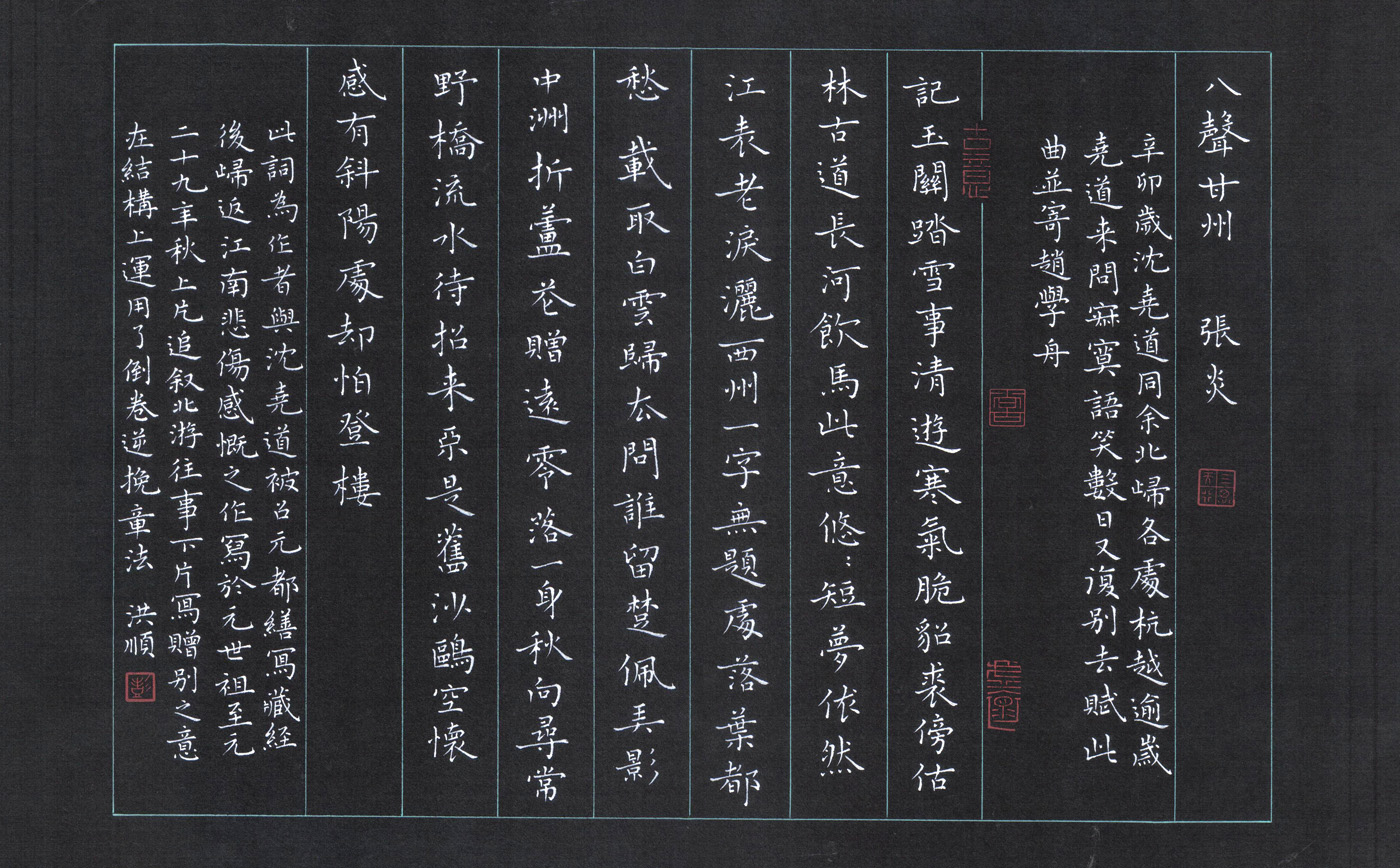 八聲甘州 張炎
辛卯歲沈堯道同余北歸各處杭越逾歲
堯道来問寂寞語笑數日又復别去賦此
曲並寄趙學舟
記玉關踏雪事清遊寒氣脆貂裘傍估
林古道長河飲馬此意悠：短夢依然
江表老淚灑西州一字無題處落葉都
愁 載取白雲歸去問誰留楚佩弄影
中洲折蘆花贈遠零落一身秋向尋常
野橋流水待招来不是舊沙鷗空懷
感有斜陽處却怕登樓
此詞為作者與沈堯道被召元都繕寫藏經
後歸返江南悲傷感慨之作寫於元世祖至元
二十九年秋上片追叙北游往事下片寫贈别之意
在結構上運用了倒卷逆挽章法 洪順
彭